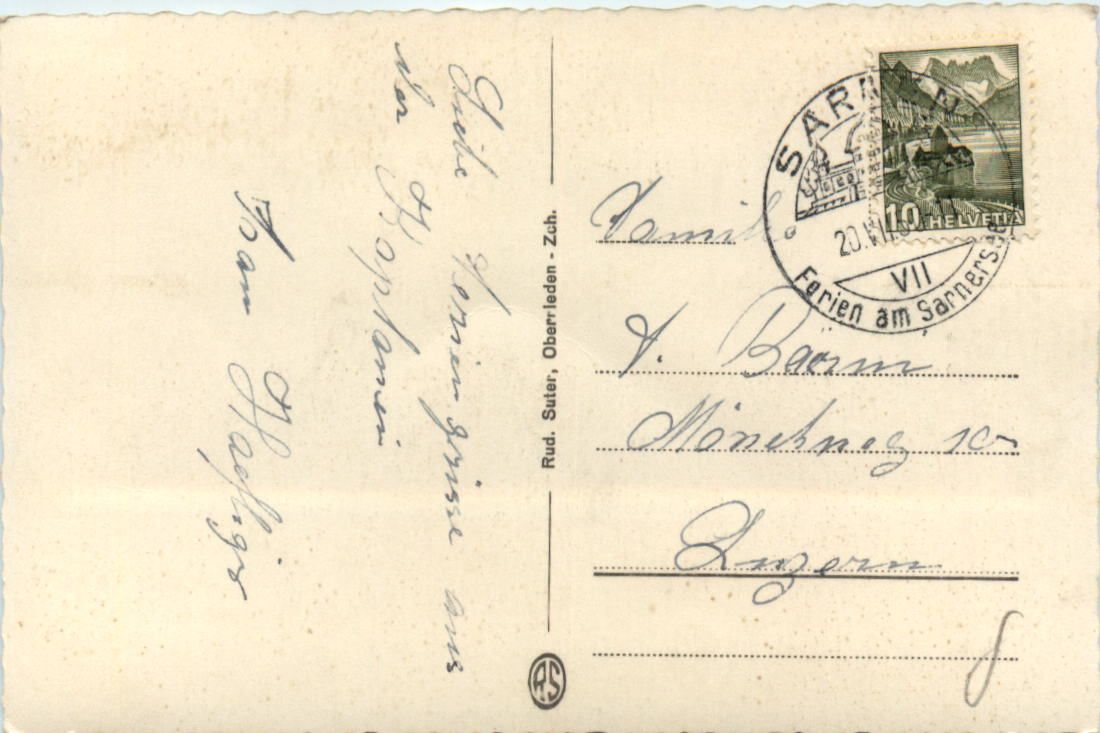 Liebe Feriengrüsse aus
der
Fam Haefliger
Rud. Suter, Oberrieden - Zch.
RS
SARNEN
20.VII.
VII
Ferien am Sarnersee
10 HELVETIA
Familie
A. Baorm
Mönchweg 10
Luzern
8